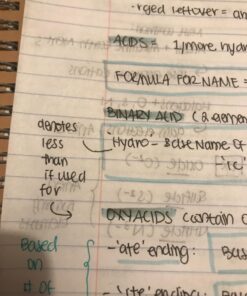 rged leftover = an
ACIDS = 1/more hydro
FORMULA FOR NAME =
BINARY ACID (2 elemen
Hydro - Base Name Of
'ic'
denotes
less
than
if used
for
OXYACIDS (contain O
- 'ate' ending: Bas
Based
on
# of
- 'ite' ending: Bas